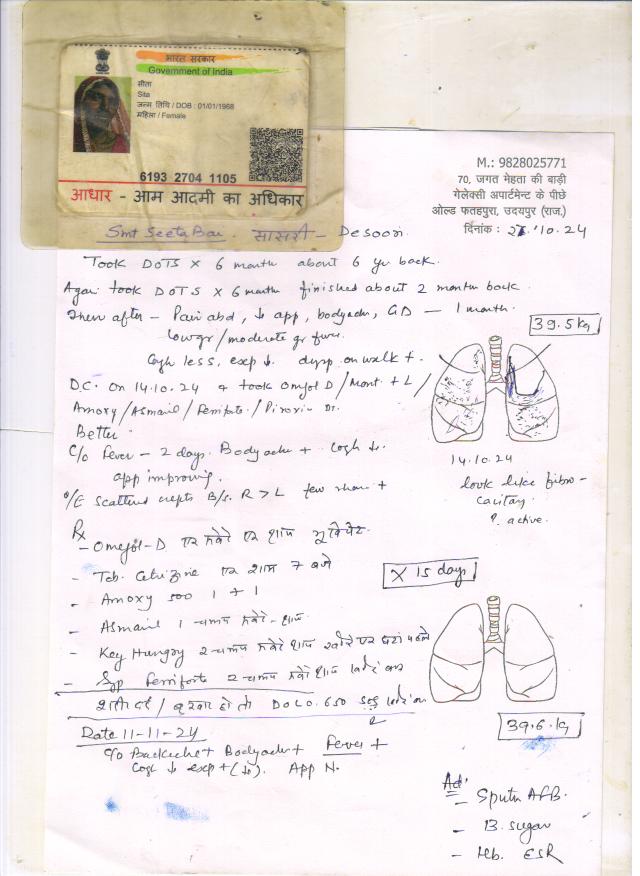 भारत सरकार
Government of India
सीता
Sita
जन्म तिथि / DOB : 01/01/1968
महिला / Female
6193 2704 1105
आधार - आम आदमी का अधिकार
M.: 9828025771
70, जगत मेहता की बाड़ी
गेलेक्सी अपार्टमेन्ट के पीछे
ओल्ड फतहपुरा, उदयपुर (राज.)
दिनांक : 10.24
Smt Seeta Bai
Took DOTS x 6 month about 6 yr back.
Again took DOTS x 6 month finished about 2 month back.
Then after - Pain abd, ↓ app, bodyache, GD - 1 month.
low gr/moderate gr fever.
39.5 kg
Cogh less, exp ↓. dysp. on walk +.
D.C. on 14.10.24 & took Omejol D / Mont + L /
Amoxy / Asmail / Ferriforte /
Better
C/o Fever - 2 days. Bodyache + Cogh ↓.
app improving.
14.10.24
look like fibro-
cavitary.
?. active.
O/E Scattered crepts B/s. R > L few +
Rx
- Omejol-D
- Tab. Cetrizine एक शाम 7 बजे
x 15 days
- Amoxy 500 1 + 1
- Asmail 1 - चम्मच सवेरे - शाम
- Key Hungry 2 - चम्मच सवेरे शाम
- Syp Ferriforte 2 - चम्मच सवेरे शाम
बुखार हो तो DOLO. 650
39.6 kg
Date 11-11-24
C/o Backache + Bodyache + Fever +
Cogh ↓ exp + (↓). App N.
Ad:
- Sputm AFB.
- B. sugar
- Hb. ESR